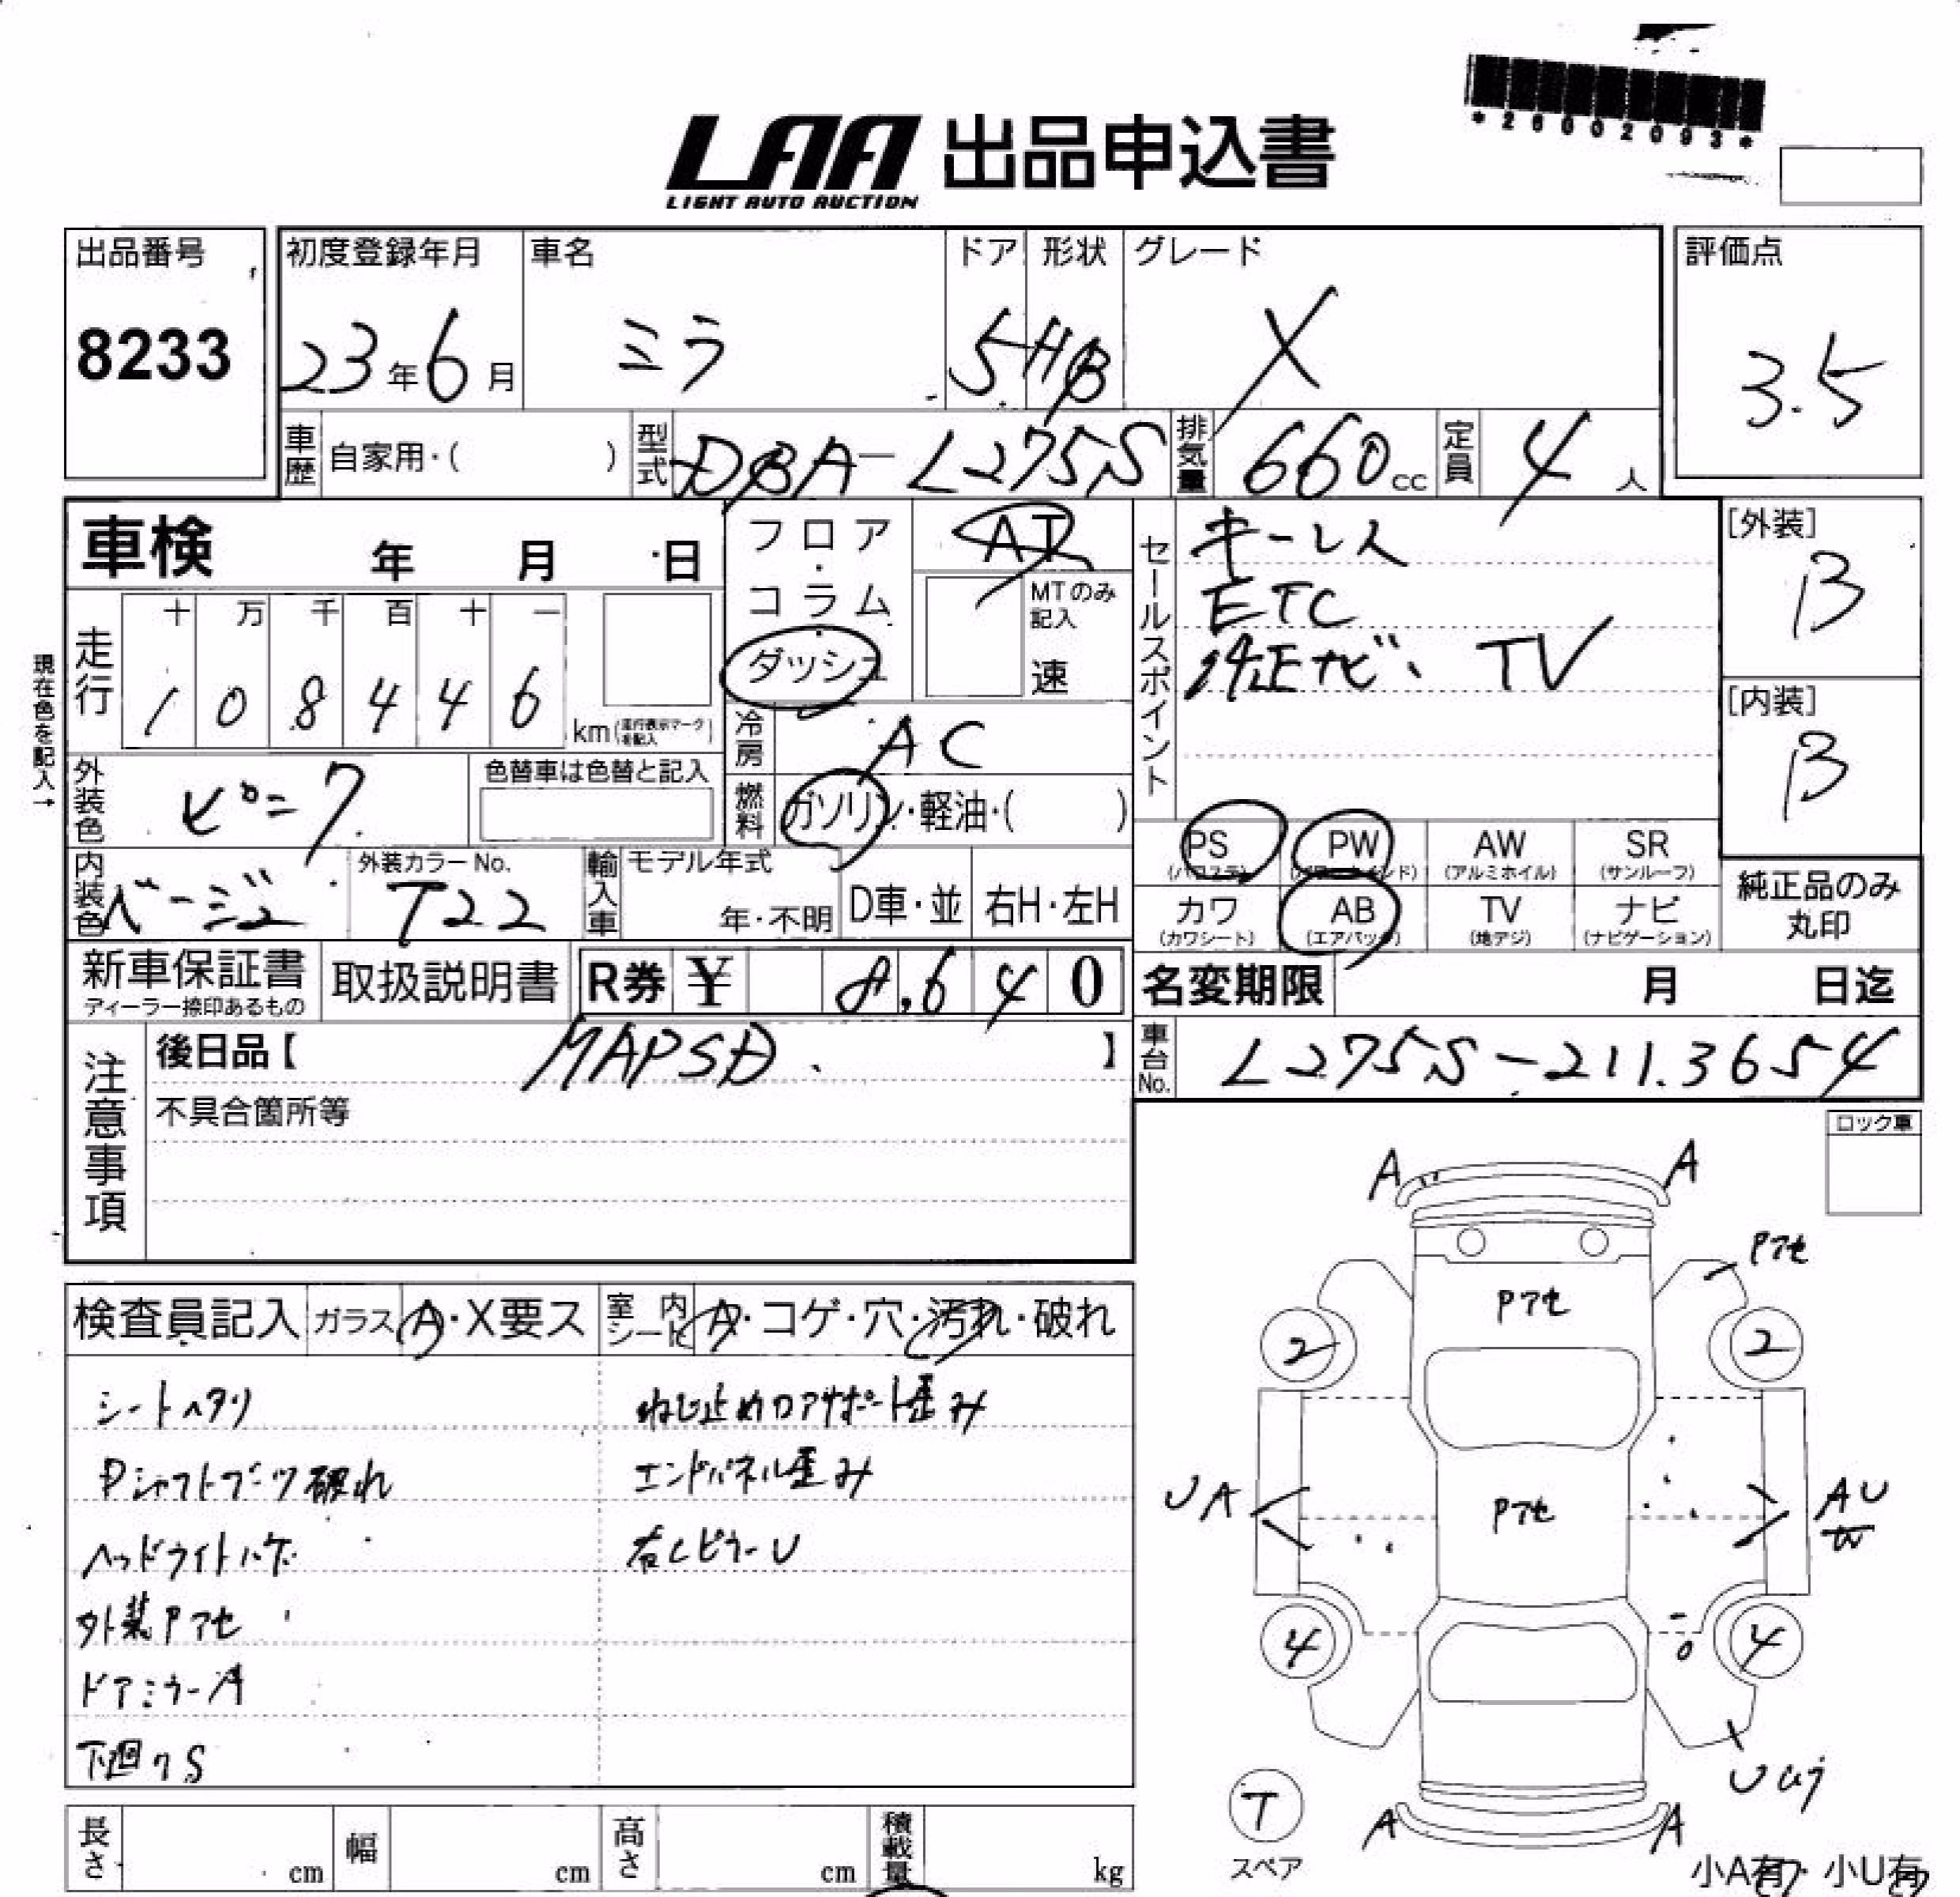 *26002093*
LAA 出品申込書
LIGHT AUTO AUCTION
出品番号
8233
初度登録年月
23年6月
車名
ミラ
ドア
5
形状
HB
グレード
X
評価点
3.5
車歴 自家用・( )
型式 DBA-L275S
排気量 660cc
定員 4人
車検 年 月 日
現在色を記入→
走行
十 万 千 百 十 一
1 0 8 4 4 6 km(走行表示マークを記入)
フロア・コラム・ダッシュ
AT
MTのみ記入
速
冷房 AC
燃料 ガソリン・軽油・( )
外装色 ピンク
色替車は色替と記入
内装色 ベージュ
外装カラーNo.
T22
輸入車 モデル年式
年・不明 D車・並 右H・左H
セールスポイント
キーレス
ETC
純正ナビ、TV
[外装]
B
[内装]
B
PS (パワステ)
PW
AW (アルミホイル)
SR (サンルーフ)
カワ (カワシート)
AB (エアバック)
TV (地デジ)
ナビ (ナビゲーション)
純正品のみ
丸印
新車保証書
ディーラー捺印あるもの
取扱説明書
R券 ¥ 8,640
名変期限 月 日迄
車台No. L275S-2113654
注意事項
後日品【 MAPSD 】
不具合箇所等
ロック車
検査員記入 ガラス A・X要ス 室内シート A・コゲ・穴・汚れ・破れ
シートヘタリ
Dシャフトブーツ破れ
ヘッドライトハゲ
外装Pアセ
ドアミラーA
下廻りS
ねじ止めコアサポート歪み
エンドパネル歪み
右LピラーU
A A
Pアセ
Pアセ
2 2
UA
Pアセ
AU
W
4 4
T
スペア
A A
小A有 小U有
長さ cm
幅 cm
高さ cm
積載量 kg